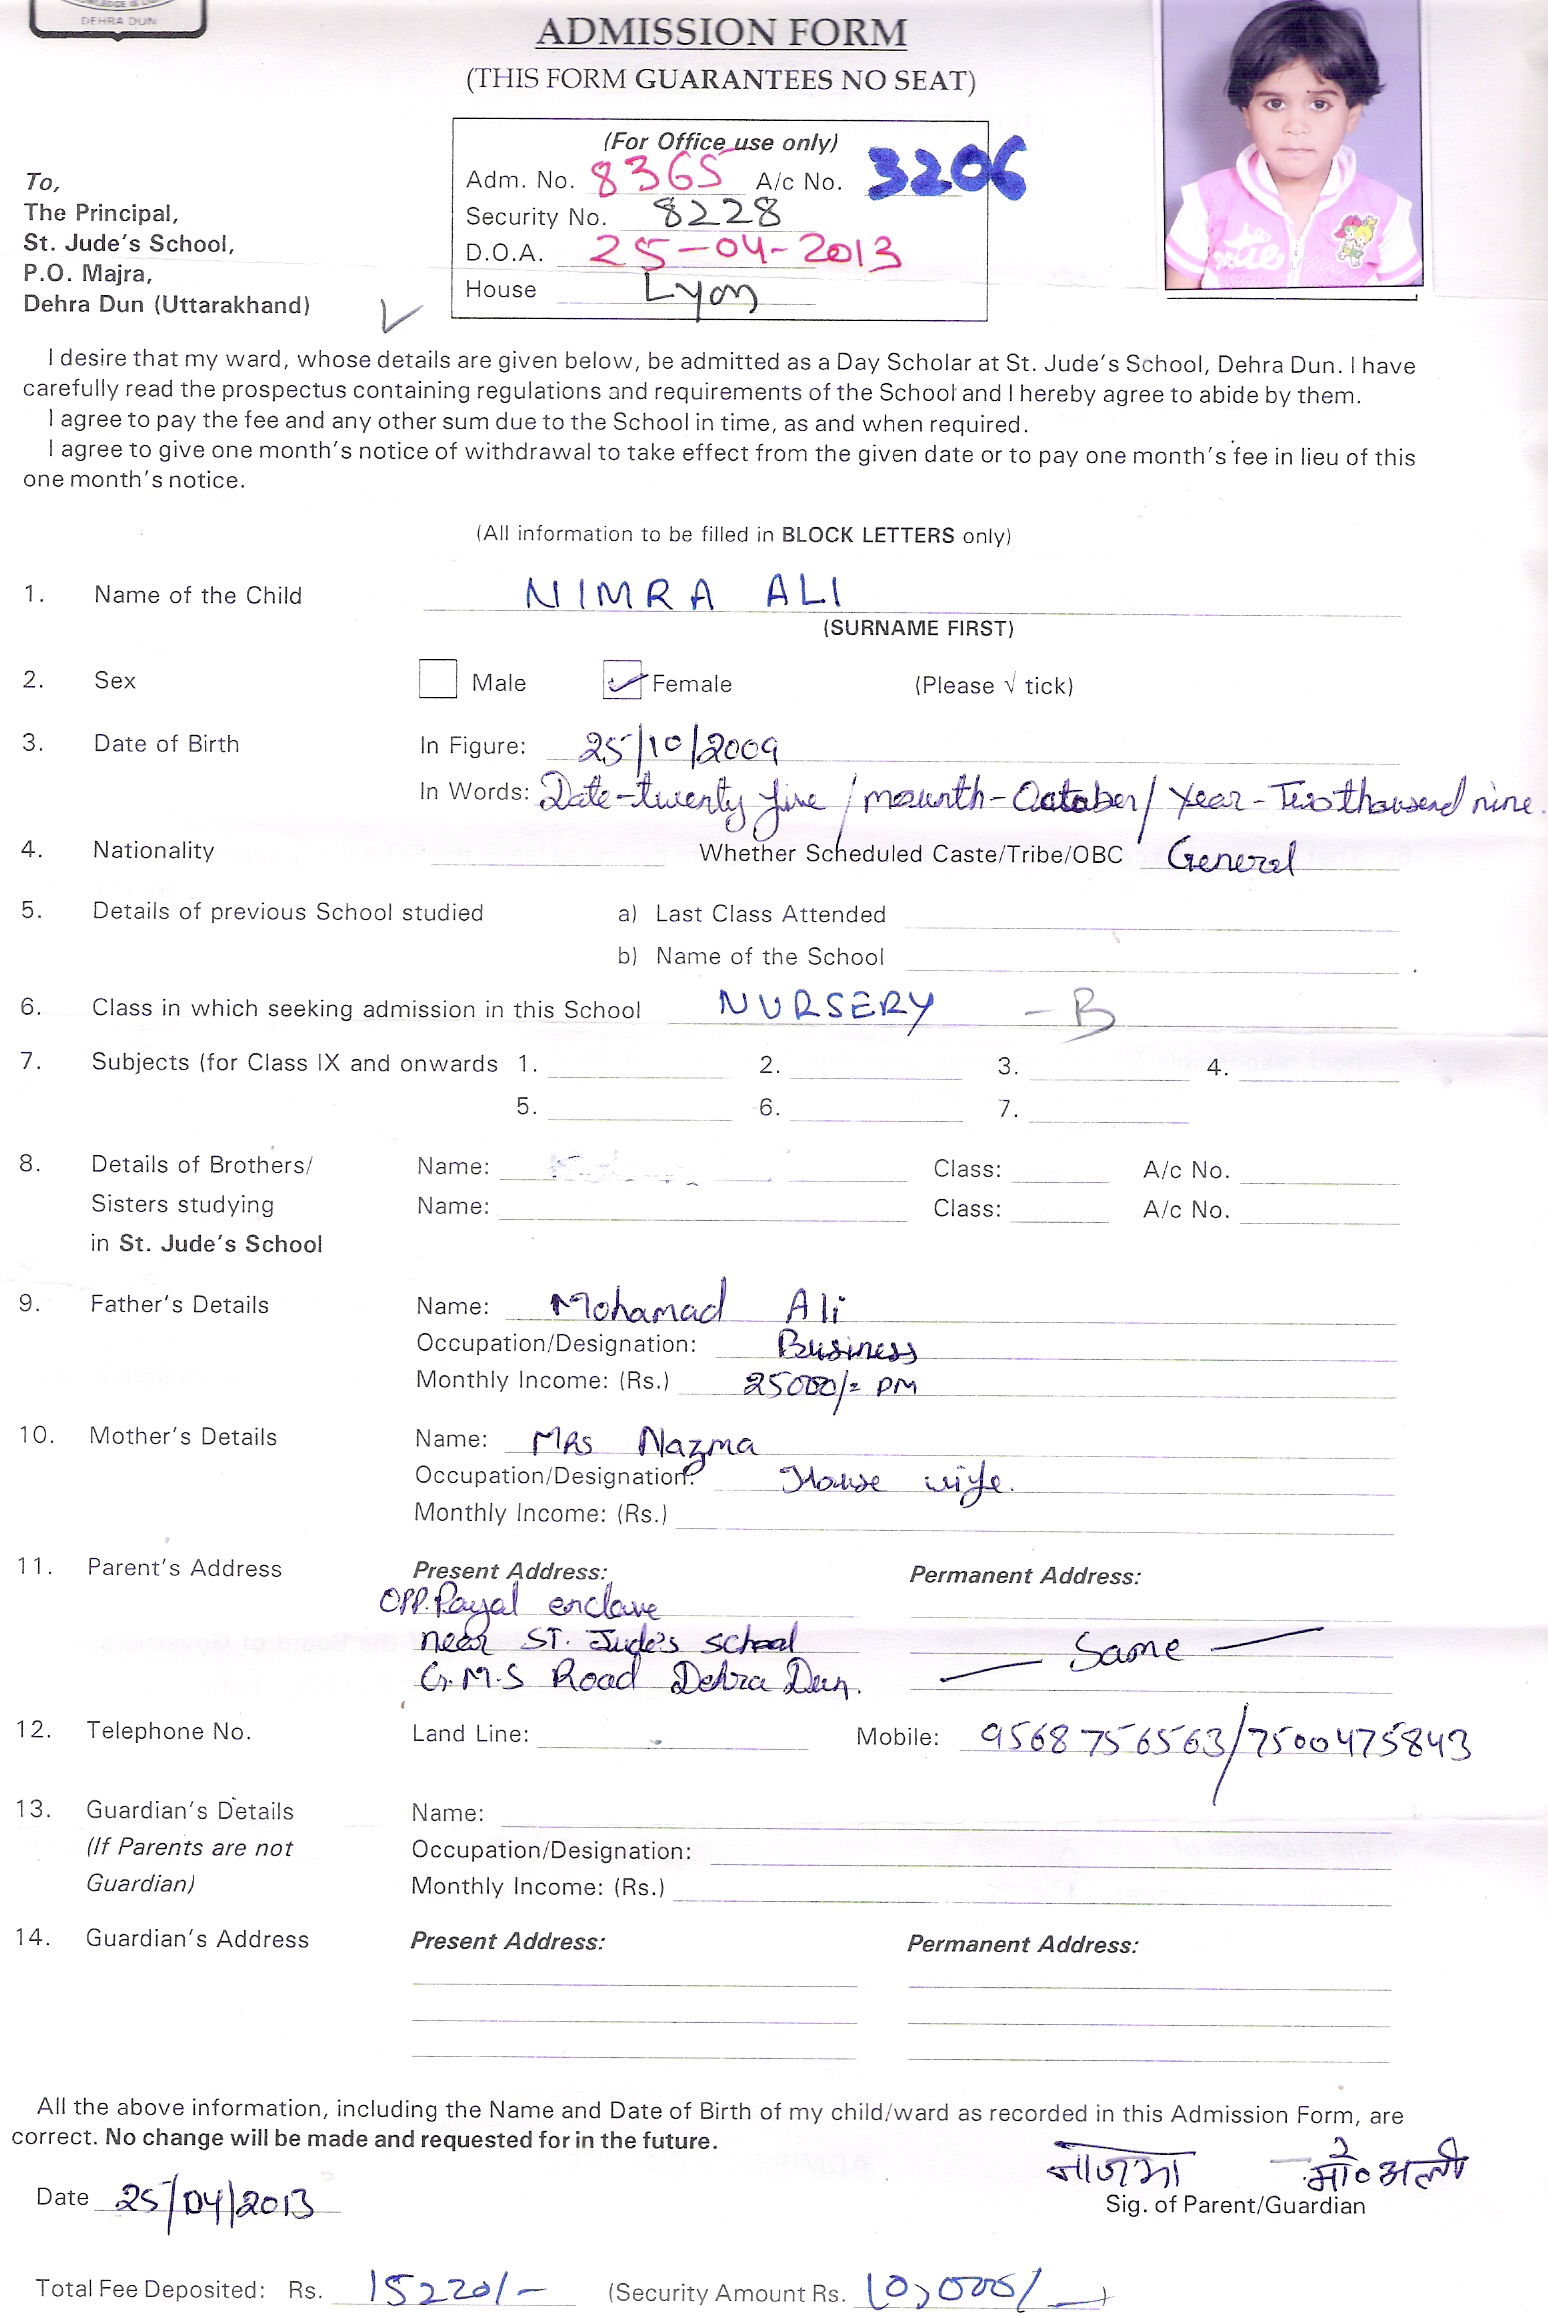 DEHRA DUN
ADMISSION FORM
(THIS FORM GUARANTEES NO SEAT)
(For Office use only)
Adm. No. 8365 A/c No. 3206
Security No. 8228
D.O.A. 25-04-2013
House Lyon
To,
The Principal,
St. Jude's School,
P.O. Majra,
Dehra Dun (Uttarakhand)
I desire that my ward, whose details are given below, be admitted as a Day Scholar at St. Jude's School, Dehra Dun. I have
carefully read the prospectus containing regulations and requirements of the School and I hereby agree to abide by them.
I agree to pay the fee and any other sum due to the School in time, as and when required.
I agree to give one month's notice of withdrawal to take effect from the given date or to pay one month's fee in lieu of this
one month's notice.
(All information to be filled in BLOCK LETTERS only)
1. Name of the Child NIMRA ALI
(SURNAME FIRST)
2. Sex Male Female (Please √ tick)
3. Date of Birth In Figure: 25/10/2009
In Words: Date-twenty five / mounth-October/ Year-Two thousend nine.
4. Nationality Whether Scheduled Caste/Tribe/OBC General
5. Details of previous School studied a) Last Class Attended
b) Name of the School
6. Class in which seeking admission in this School NURSERY - B
7. Subjects (for Class IX and onwards 1. 2. 3. 4.
5. 6. 7.
8. Details of Brothers/ Name: Class: A/c No.
Sisters studying Name: Class: A/c No.
in St. Jude's School
9. Father's Details Name: Mohamad Ali
Occupation/Designation: Business
Monthly Income: (Rs.) 25000/= PM
10. Mother's Details Name: MRs Nazma
Occupation/Designation: House wife.
Monthly Income: (Rs.)
11. Parent's Address Present Address: Permanent Address:
OPP. Payal enclave
near ST. Jude's school — Same —
G.M.S Road Dehra Dun.
12. Telephone No. Land Line: Mobile: 9568756563/7500475843
13. Guardian's Details Name:
(If Parents are not Occupation/Designation:
Guardian) Monthly Income: (Rs.)
14. Guardian's Address Present Address: Permanent Address:
All the above information, including the Name and Date of Birth of my child/ward as recorded in this Admission Form, are
correct. No change will be made and requested for in the future.
नाजमा मौ० अली
Date 25/04/2013 Sig. of Parent/Guardian
Total Fee Deposited: Rs. 15220/- (Security Amount Rs. 10,000/-)